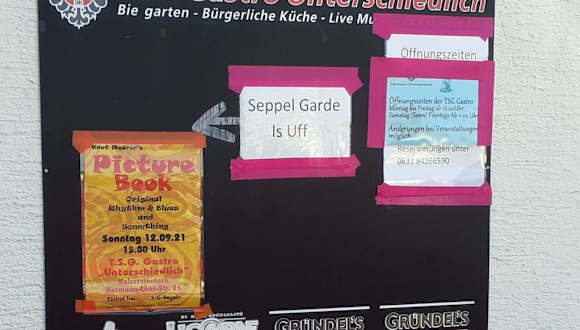 Gastro Unterschiedlich
Bie garten - Bürgerliche Küche - Live Mu
Öffnungszeiten
Öffnungszeiten der TSG Gastro
Montag bis Freitag ab 16.00Uhr
Samstag /Sonn/ Feiertags Ab 11.00 Uhr
Änderungen bei Veranstaltungen
möglich
Reservierungen unter
0631 84266590
Seppel Garde
Is Uff
Knut Maurer's
Picture
Book
Original
Rhythm & Blues
and
Something
Sonntag 12.09.21
15.00 Uhr
T.S.G. Gastro
„Unterschiedlich"
Kaiserslautern
Hermann-Löns-Str. 25
Eintritt frei 3-G-Regeln
LICORNE
GRÜNDEL'S
GRÜNDEL'S